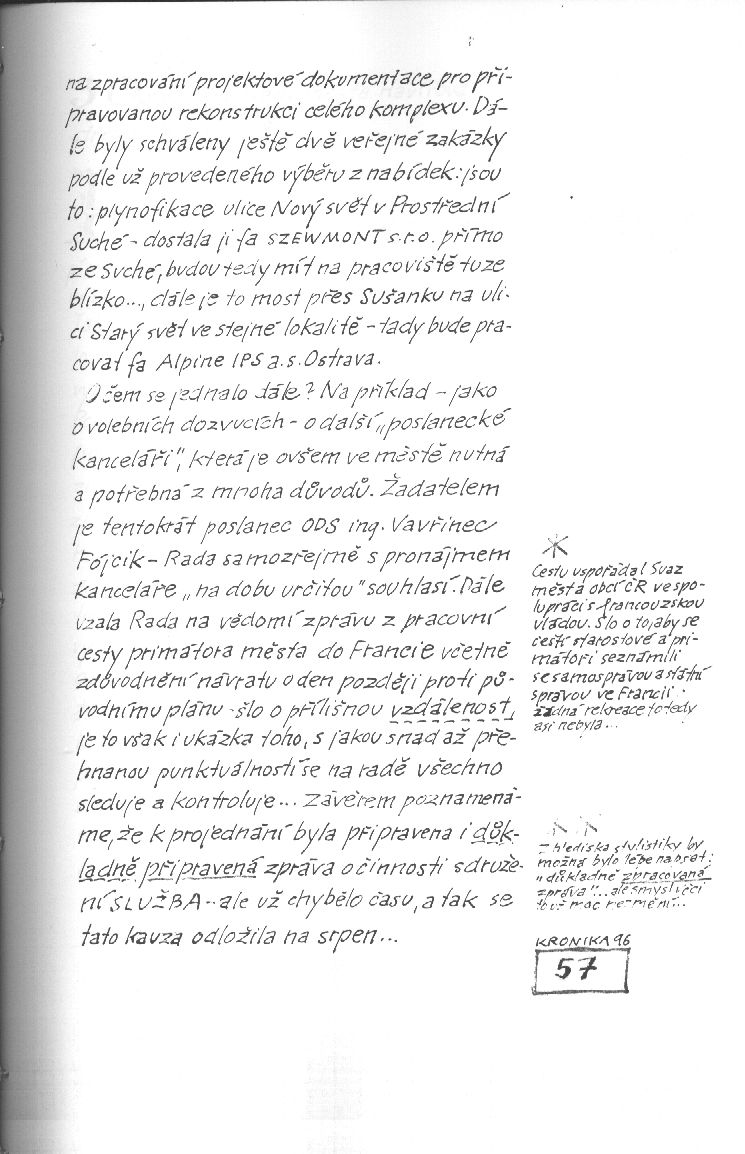 na zpracování projektové dokumentace pro při-
pravovanou rekonstrukci celého komplexu. Dá-
le byly schváleny ještě dvě veřejné zakázky
podle už provedeného výběru z nabídek: jsou
to: plynofikace ulice Nový svět v Prostřední
Suché - dostala ji fa SZEWMONT s.r.o. přímo
ze Suché, budou tedy mít na pracoviště tuze
blízko..., dále je to most přes Sušanku na uli-
ci Starý svět ve stejné lokalitě - tady bude pra-
covat fa Alpine IPS a.s. Ostrava.
O čem se jednalo dále? Na příklad - jako
o volebních dozvucích - o další „poslanecké
kanceláři", která je ovšem ve městě nutná
a potřebná z mnoha důvodů. Žadatelem
je tentokrát poslanec ODS ing. Vavřinec
Fójcik - Rada samozřejmě s pronájmem
kanceláře „na dobu určitou" souhlasí. Dále
vzala Rada na vědomí zprávu z pracovní
cesty primátora města do Francie včetně
zdůvodnění návratu o den později proti pů-
vodnímu plánu - šlo o přílišnou vzdálenost,
je to však i ukázka toho, s jakou snad až pře-
hnanou punktuálností se na radě všechno
sleduje a kontroluje... Závěrem poznamená-
me, že k projednání byla připravena i důk-
ladně připravená zpráva o činnosti sdruže-
ní SLUŽBA - ale už chybělo času, a tak se
tato kauza odložila na srpen...
Cestu uspořádal Svaz
měst a obcí ČR ve spo-
lupráci s francouzskou
vládou. Šlo o to, aby se
čeští starostové a pri-
mátoři seznámili
se samosprávou a státní
správou ve Francii.
Žádná rekreace to tedy
asi nebyla...
Z hlediska stylistiky by
možná bylo lépe napsat:
„důkladně zpracovaná
zpráva"... ale smysl věci
to už moc nemění...
KRONIKA 96
57